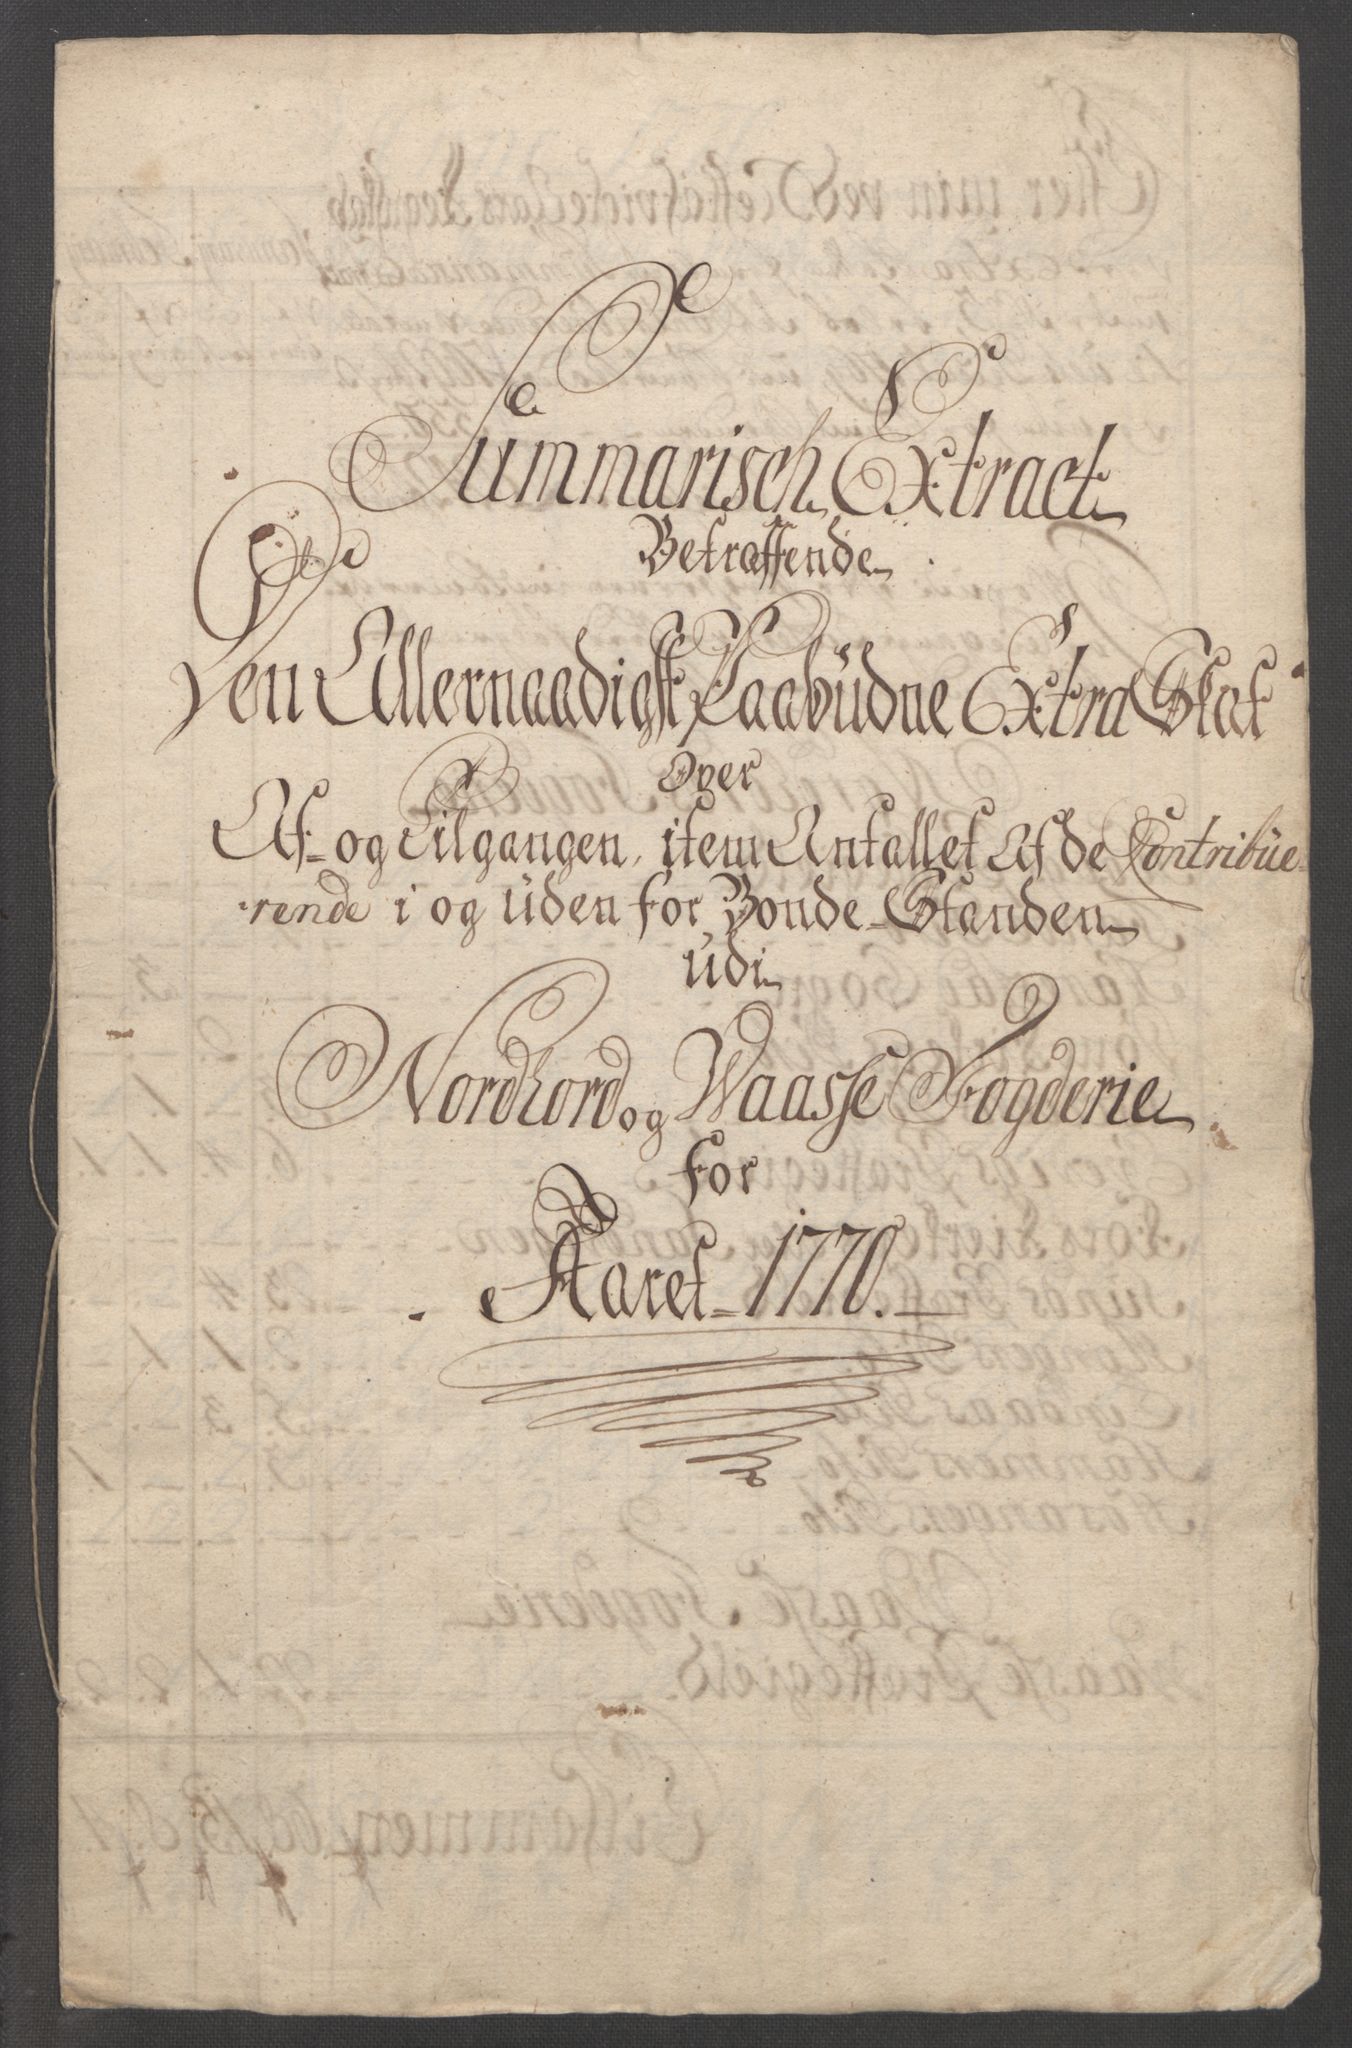 Summarisch Extract
Betræffende
Den Allernaadigst Paabudne Extra Skat
Over
Af- og Tilgangen, item Antallet Af de Contribue-
rende i og uden for Bonde-Standen
udi
Nordhord og Waasse Fogderie
for
Aaret 1770.